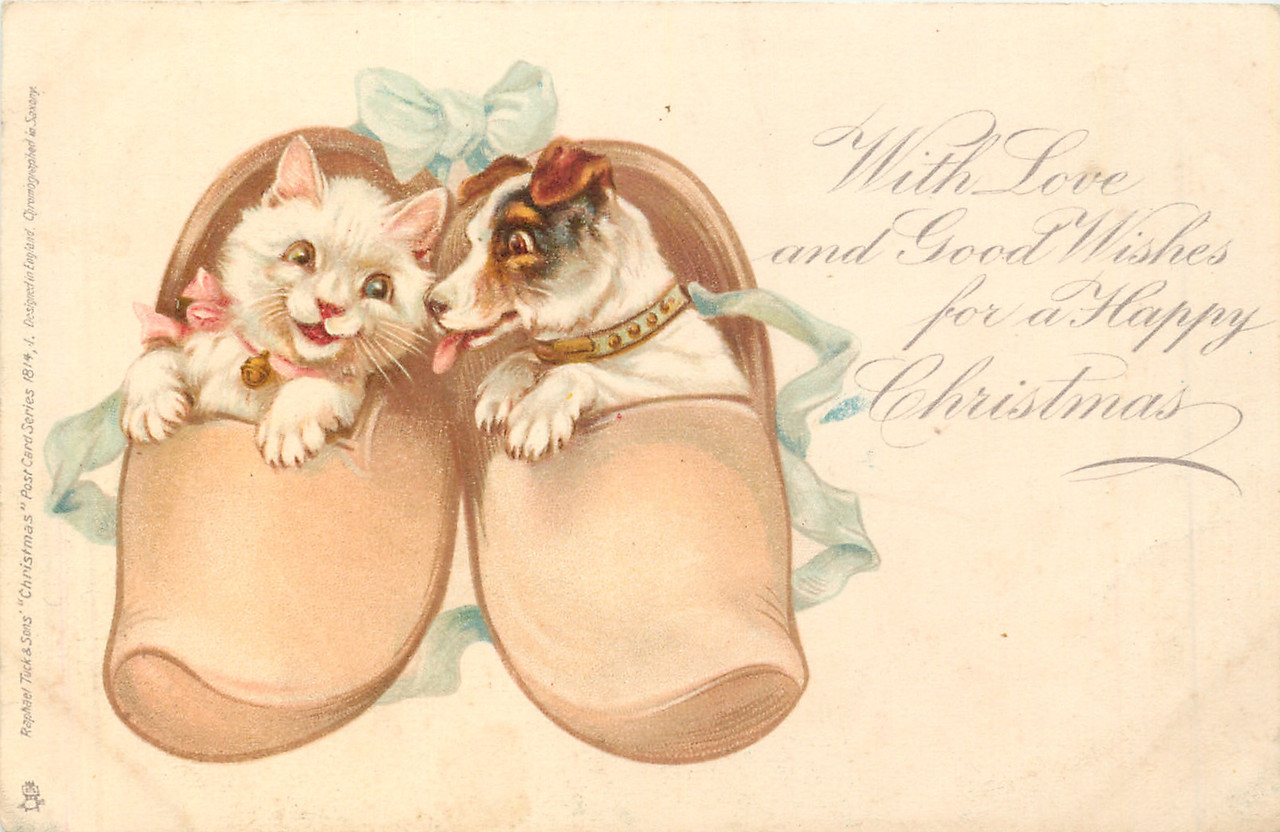 With Love
and Good Wishes
for a Happy
Christmas
Raphael Tuck & Sons' "Christmas" Post Card Series 1814, I. Designed in England. Chromographed in Saxony.